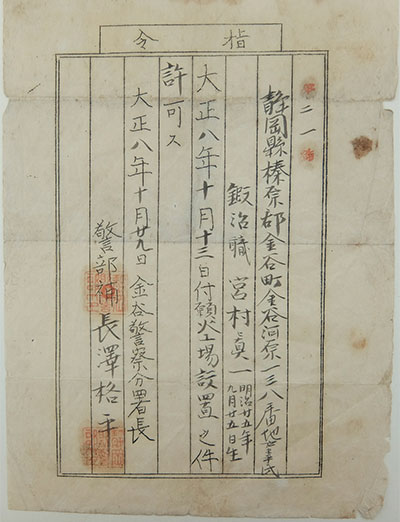 指令
第二一号
静岡縣榛原郡金谷町金谷河原一三八番地平民
鍛冶職 宮村真一
明治廿五年
九月廿五日生
大正八年十月十三日付願火工場設置之件
許可ス
大正八年十月廿九日 金谷警察分署長
警部補 長澤格平